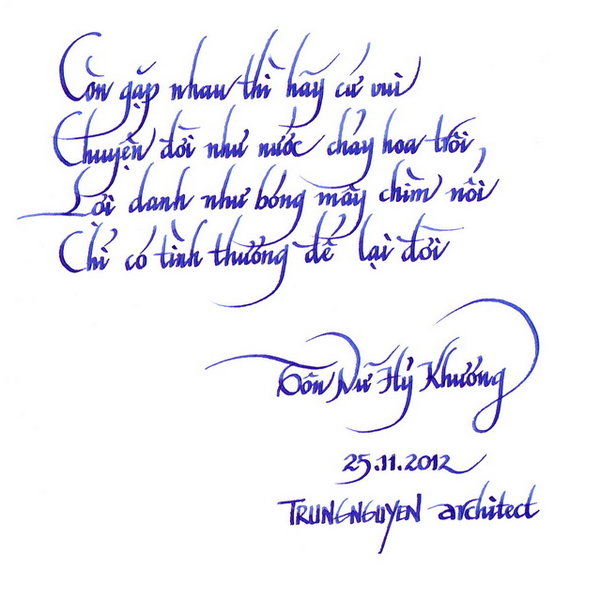 Còn gặp nhau thì hãy cứ vui
Chuyện đời như nước chảy hoa trôi,
Lợi danh như bóng mây chìm nổi
Chỉ có tình thương để lại đời
Tôn Nữ Hỷ Khương
25.11.2012
TRUNGNGUYEN architect